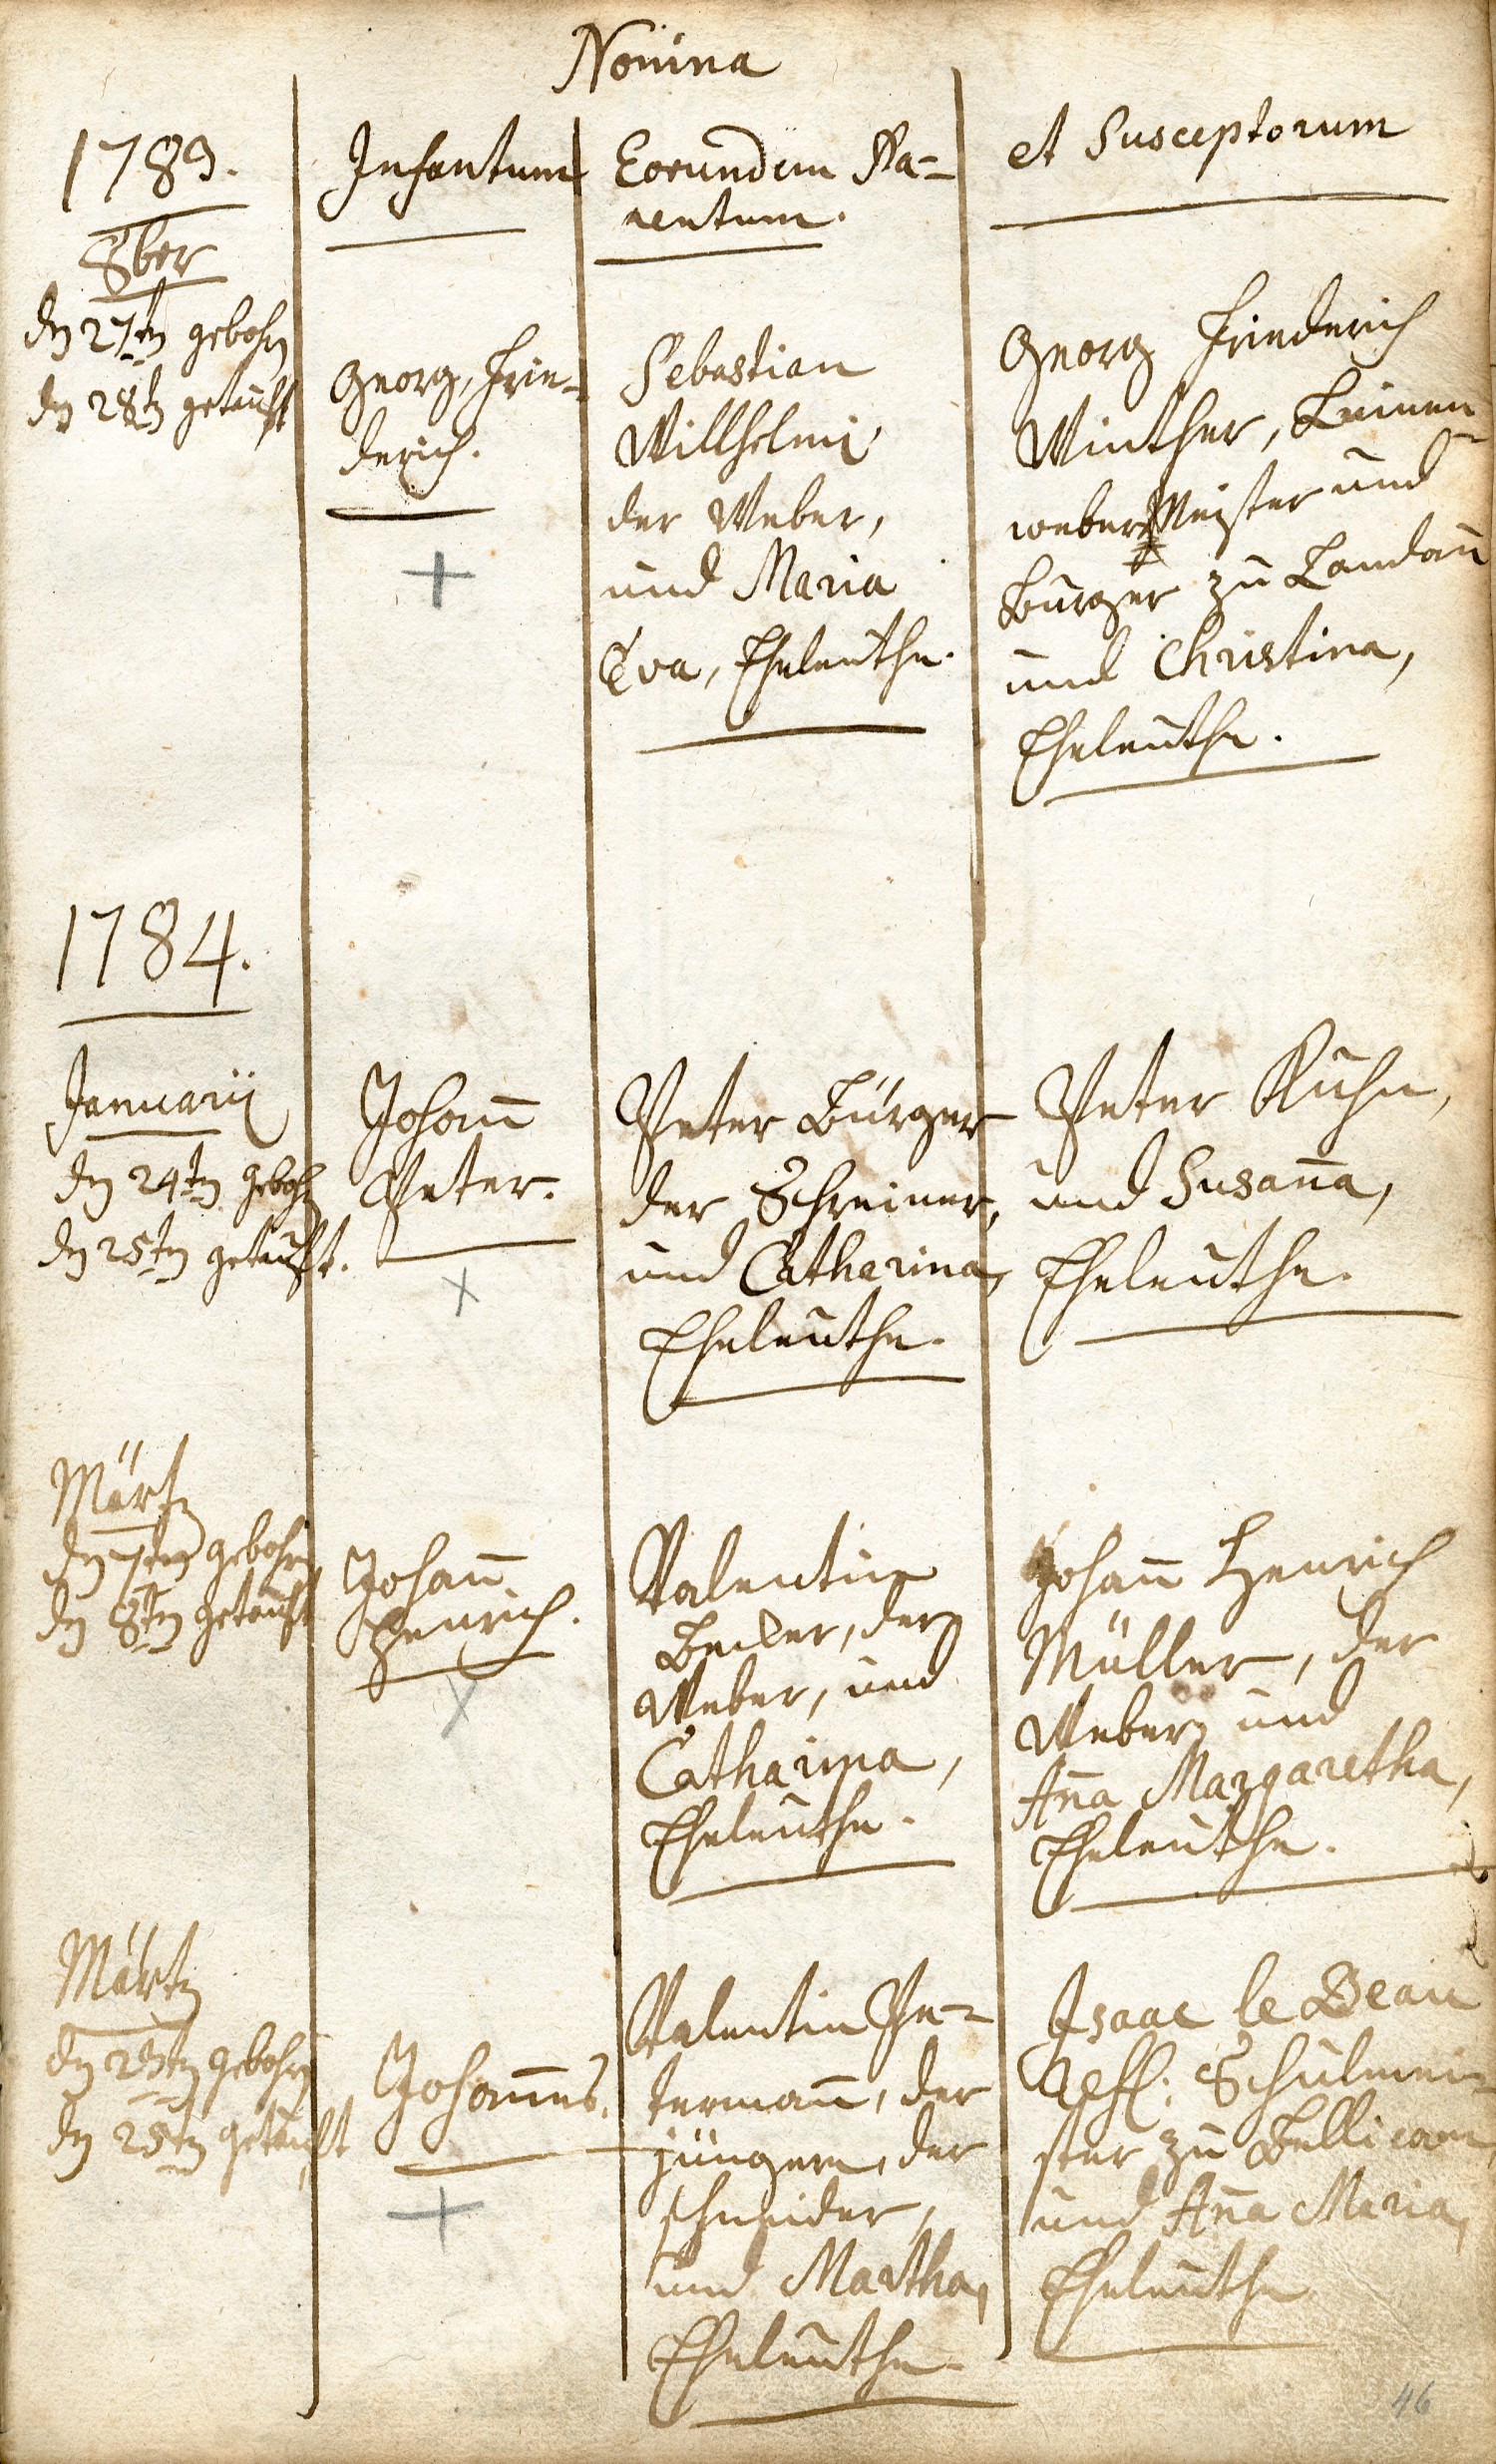 Nomina
1783.
Infantum
Eorundem Pa-
rentum.
et Susceptorum
8ber
den 27ten gebohrn
den 28ten getauft
Georg, Frie-
derich.
Sebastian
Willhelmi
der Weber,
und Maria
Eva, Eheleuthe.
Georg Friederich
Winther, Leinen
weber Meister und
Burger zu Landau
und Christina,
Eheleuthe.
1784.
Januarii
den 24ten gebohrn
den 25ten getauft.
Johann
Peter.
Peter Bürger
der Schreiner,
und Catharina,
Eheleuthe.
Peter Kuhn,
und Susaña,
Eheleuthe.
Märtz
den 7ten gebohrn
den 8ten getauft
Johañ
Henrich.
Valentin
Becker, der
Weber, und
Catharina,
Eheleuthe.
Johañ Henrich
Müller, der
Weber, und
Aña Margaretha,
Eheleuthe.
Märtz
den 23ten gebohrn
den 25ten getauft
Johañes.
Valentin Pe-
termañ, der
jüngere, der
schneider,
und Martha,
Eheleuthe.
Isaac le Beau
Reff. Schulmei-
ster zu Bellicam
und Aña Maria,
Eheleuthe
46